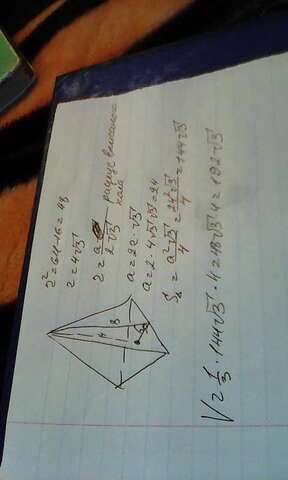 r² = 64 - 16 = 48
r = 4√3
r = a / 2√3 - радиус вписаного кола
a = 2r · √3
a = 2 · 4√3 √3 = 24
S = a²√3 / 4 = 24²√3 / 4 = 144√3
8
4
V = 1/3 · 144√3 · 4 = 48√3 · 4 = 192√3